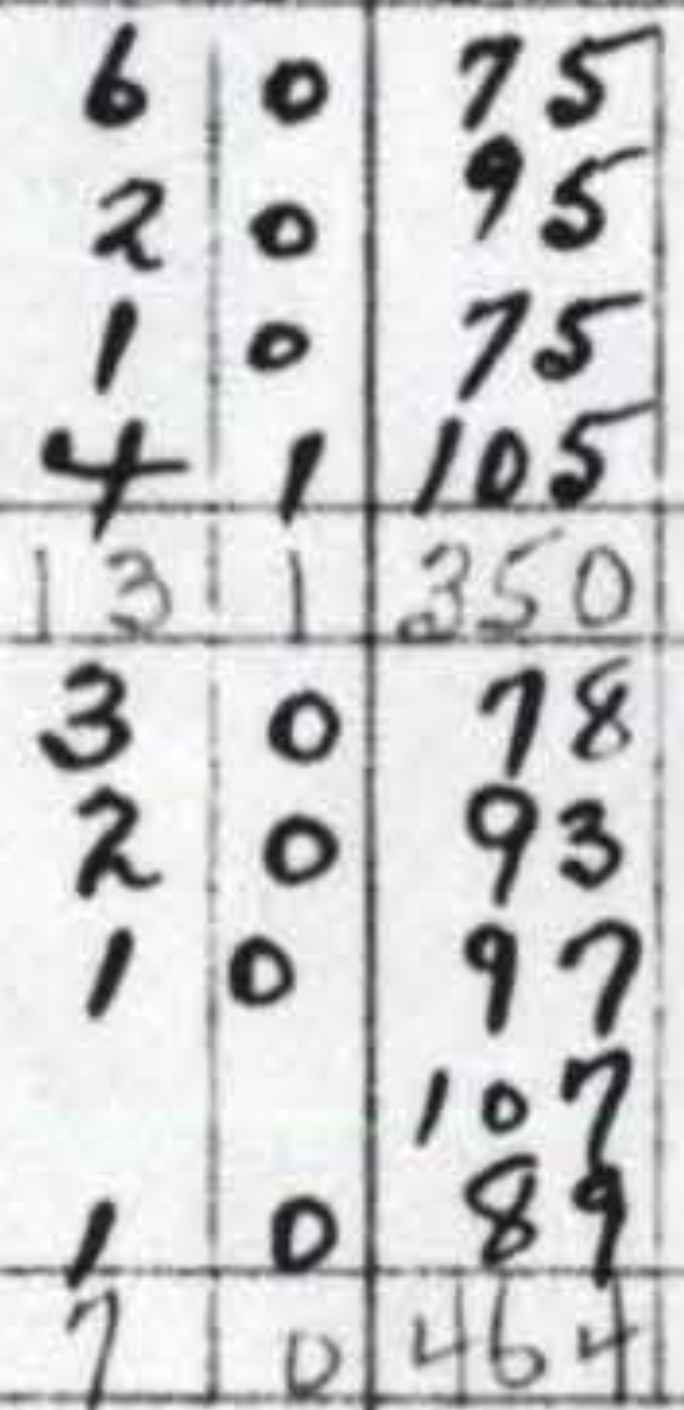 6 0 75
2 0 95
1 0 75
4 1 105
13 1 350
3 0 78
2 0 93
1 0 97
107
1 0 89
7 0 464